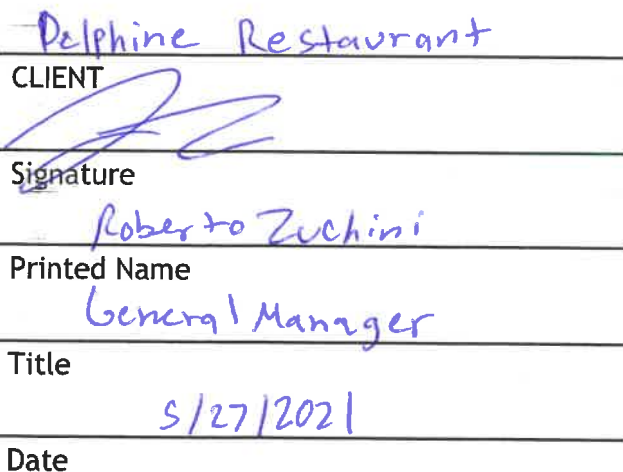 Delphine Restaurant
CLIENT
Signature
Roberto Zuchini
Printed Name
General Manager
Title
5/27/2021
Date